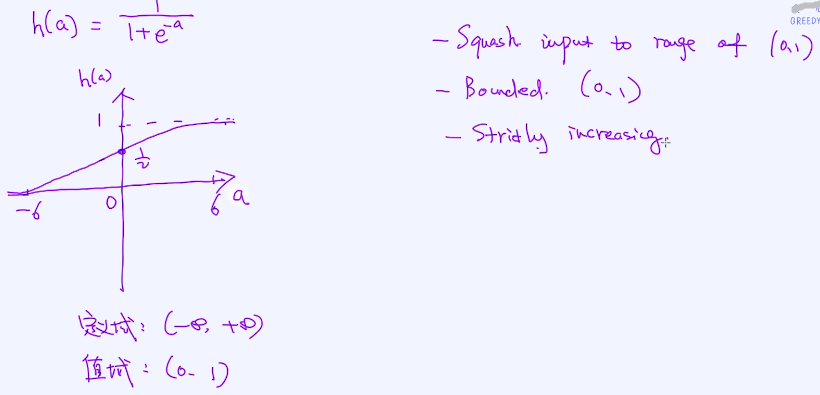 h(a) = 1/(1+e^-a)
h(a)
1
1/2
-6
0
6
a
定义域: (-∞, +∞)
值域: (0, 1)
- Squash input to range of (0,1)
- Bounded. (0,1)
- Strictly increasing.
GREEDY